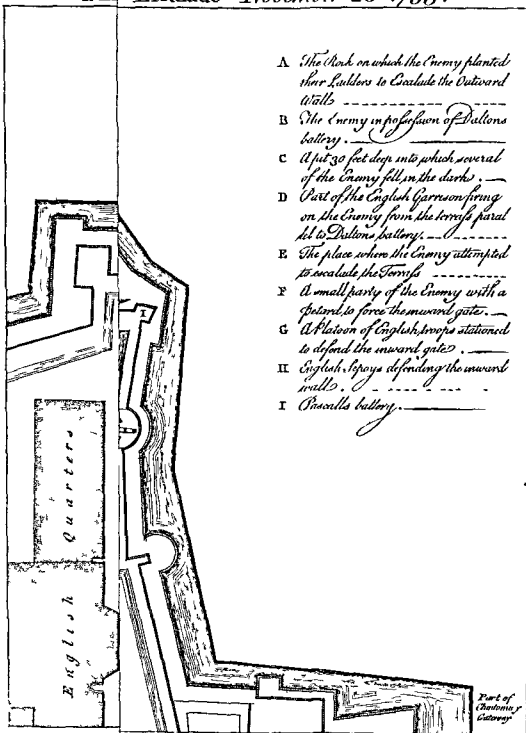 Escalade November 28 1753.
A The Rock on which the Enemy planted
their Ladders to Escalade the Outward
Wall
B The Enemy in possession of Daltons
battery.
C A pit 30 feet deep into which several
of the Enemy fell in the dark.
D Part of the English Garrison firing
on the Enemy from the terrass paral
lel to Daltons battery.
E The place where the Enemy attempted
to escalade the Terrass
F A small party of the Enemy with a
Petard, to force the inward gate.
G A Platoon of English troops stationed
to defend the inward gate.
H English Sepoys defending the inward
wall.
I Pascalls battery.
I
English Quarters
Part of
Gateway